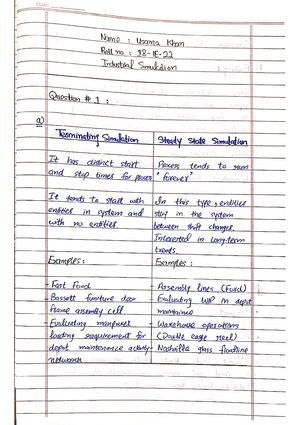 Name : Usama Khan
Roll no : 18-IE-22
Industrial Simulation
Question # 1 :
a)
Terminating Simulation
It has distinct start
and stop times for process
It tends to start with
entities in system and
with no entities.
Examples :
- Fast Food
- Bassett furniture door
frame assembly cell.
- Evaluating manpower
loading requirement for
depot maintenance activity
network
Steady State Simulation
Process tends to run
"forever"
In this type, entities
stay in the system
between shift changes.
Interested in long-term
trends.
Examples :
- Assembly lines (Ford)
- Evaluating WIP in depot
maintaince
- Warehouse operations
(Double eagle steel)
- Nashville glass floatline